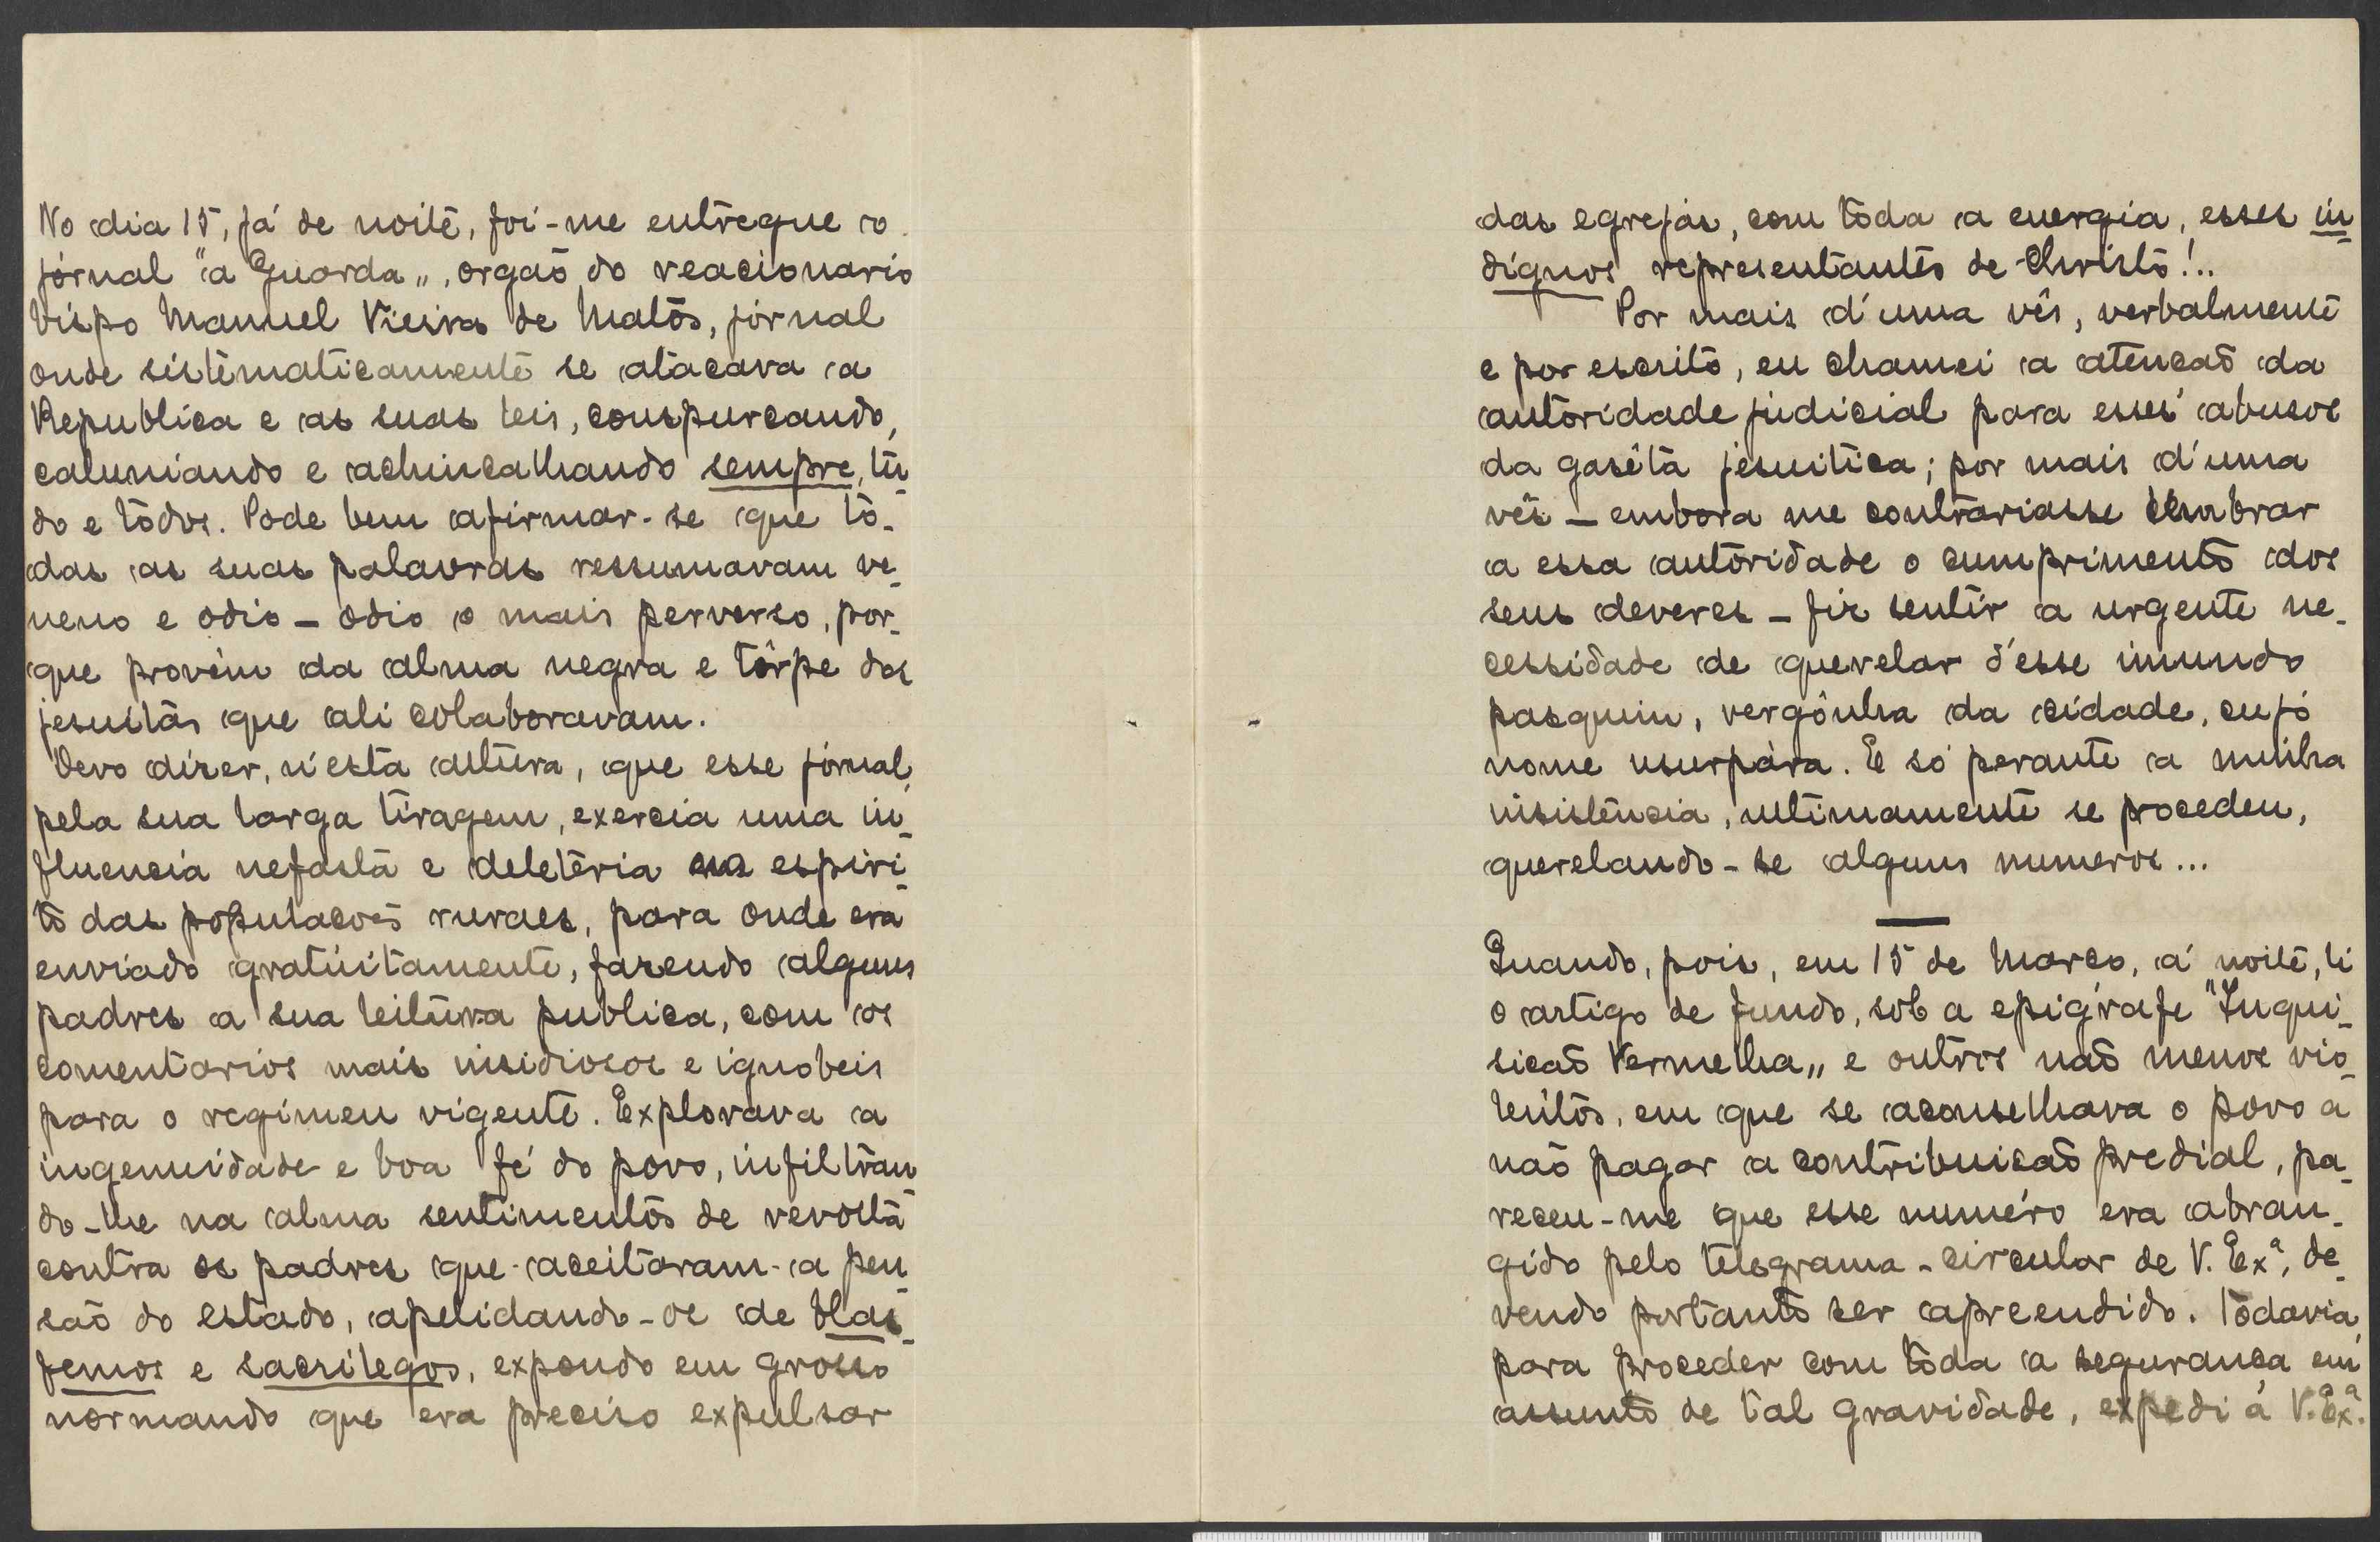 No dia 15, já de noite, foi-me entregue o
jornal "a Guarda", orgaõ do reacionario
bispo Manuel Vieira de Matos, jornal
onde sistematicamente se atacava a
Republica e as suas leis, conspurcando,
caluniando e achincalhando sempre, tu-
do e todos. Pode bem afirmar-se que to-
das as suas palavras ressumavam ve-
neno e odio - odio o mais perverso, por-
que provém da alma negra e tôrpe dos
jesuitas que ali colaboravam.
Devo dizer, n'esta altura, que esse jornal,
pela sua larga tiragem, exercia uma in-
fluencia nefasta e deletéria no espiri-
to das populacoẽs ruraes, para onde era
enviado gratuitamente, fazendo alguns
padres a sua leitura publica, com os
comentarios mais insidiosos e ignobeis
para o regimen vigente. Explorava a
ingenuidade e boa fé do povo, infiltran-
do-lhe na alma sentimentos de revolta
contra os padres que aceitaram a pen-
saõ do estado, apelidando-os de blas-
femos e sacrilegos, expondo em grosso
normando que era preciso expulsar
das egrejas, com toda a energia, esses in-
dignos representantes de Christo!..
Por mais d'uma vês, verbalmente
e por escrito, eu chamei a atencaõ da
autoridade judicial para esses abusos
da gasêta jesuitica; por mais d'uma
vês - embora me contrariasse lembrar
a essa autoridade o cumprimento dos
seus deveres - fiz sentir a urgente ne-
cessidade de querelar d'esse imundo
pasquim, vergônha da cidade, cujo
nome usurpára. E só perante a minha
insistência, ultimamente se procedeu,
querelando-se alguns numeros...
Quando, pois, em 15 de Marco, á noite, li
o artigo de fundo, sob a epigrafe "Inqui-
sicaõ Vermelha" e outros naõ menos vio-
lentos, em que se aconselhava o povo a
naõ pagar a contribuicaõ predial, pa-
receu-me que esse numero era abran-
gido pelo telegrama-circular de V. Exª, de-
vendo portanto ser apreendido. Todavia,
para proceder com toda a seguranca em
assunto de tal gravidade, expedi á V. Exª.